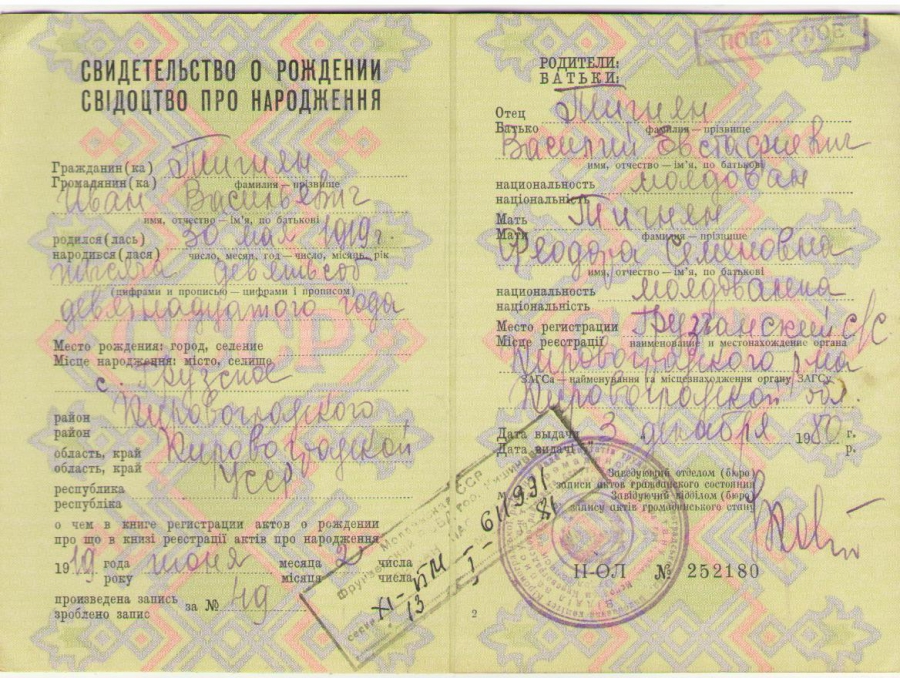 СВИДЕТЕЛЬСТВО О РОЖДЕНИИ
СВІДОЦТВО ПРО НАРОДЖЕННЯ
Гражданин(ка) Тигнян
Громадянин(ка) фамилия — прізвище
Иван Васильевич
имя, отчество — ім'я, по батькові
родился(лась) 30 мая 1919 г.
народився(лася) число, месяц, год — число, місяць, рік
тысяча девятьсот
(цифрами и прописью — цифрами і прописом)
девятнадцатого года
Место рождения: город, селение
Місце народження: місто, селище
с. Грузское
район Кировоградского
район
область, край Кировоградской
область, край
республика УССР
республіка
о чем в книге регистрации актов о рождении
про що в книзі реєстрації актів про народження
1919 года июня месяца 2 числа
року місяця числа
произведена запись за № 49
зроблено запис
ПОВТОРНОЕ
РОДИТЕЛИ:
БАТЬКИ:
Отец Тигнян
Батько фамилия — прізвище
Василий Евстафиевич
имя, отчество — ім'я, по батькові
национальность молдован
національність
Мать Тигнян
Мати фамилия — прізвище
Феодора Семеновна
имя, отчество — ім'я, по батькові
национальность молдованка
національність
Место регистрации Грузчанский с/с
Місце реєстрації наименование и местонахождение органа
Кировоградского р-на
ЗАГСа — найменування та місцезнаходження органу ЗАГСу
Кировоградской обл.
Дата выдачи 3 декабря 1980 г.
Дата видачі р.
Заведующий отделом (бюро)
записи актов гражданского состояния
Завідуючий відділом (бюро)
запису актів громадянського стану
II-ОЛ № 252180
2
ССР
XI-
13
I-
611991